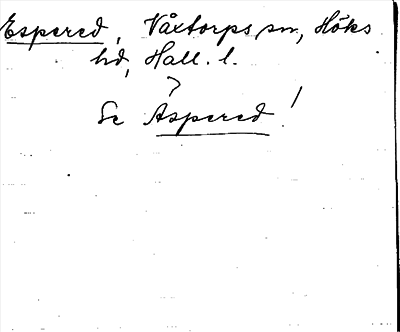 Espered, Våxtorps sn, Höks
hd, Hall. l.
?
Se Aspered!